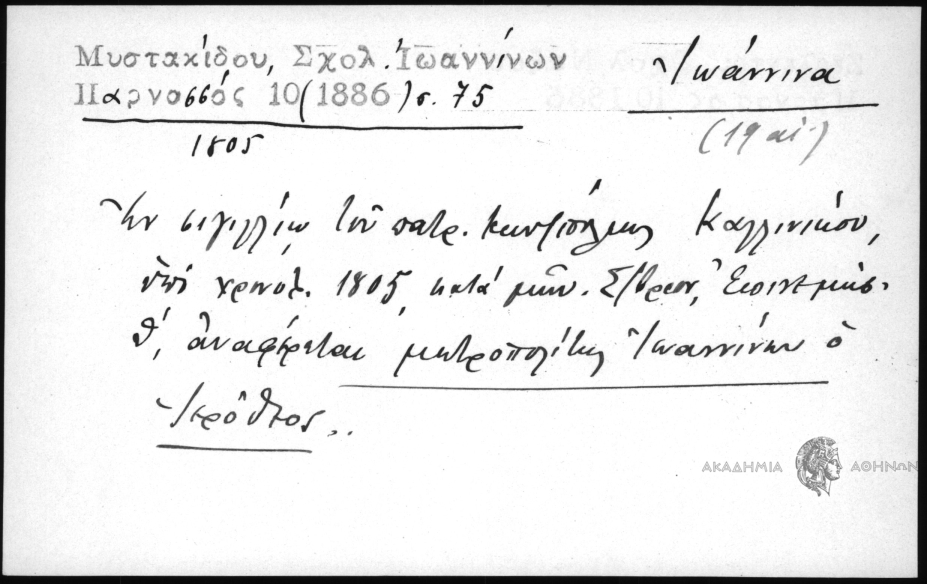 Μυστακίδου, Σχολ. Ἰωαννίνων
Παρνασσός 10 (1886) σ. 75
Ἰωάννινα
1805
(19 αἰ.)
Ἐν σιγιλλίῳ τοῦ πατρ. Κωνσ/πόλεως Καλλινίκου,
ὑπὸ χρονολ. 1805, κατὰ μῆν. Σ/βριον, Ἐπινεμήσ.
Θ΄, ἀναφέρεται μητροπολίτης Ἰωαννίνων ὁ
Ἱερόθεος..
ΑΚΑΔΗΜΙΑ ΑΘΗΝΩΝ